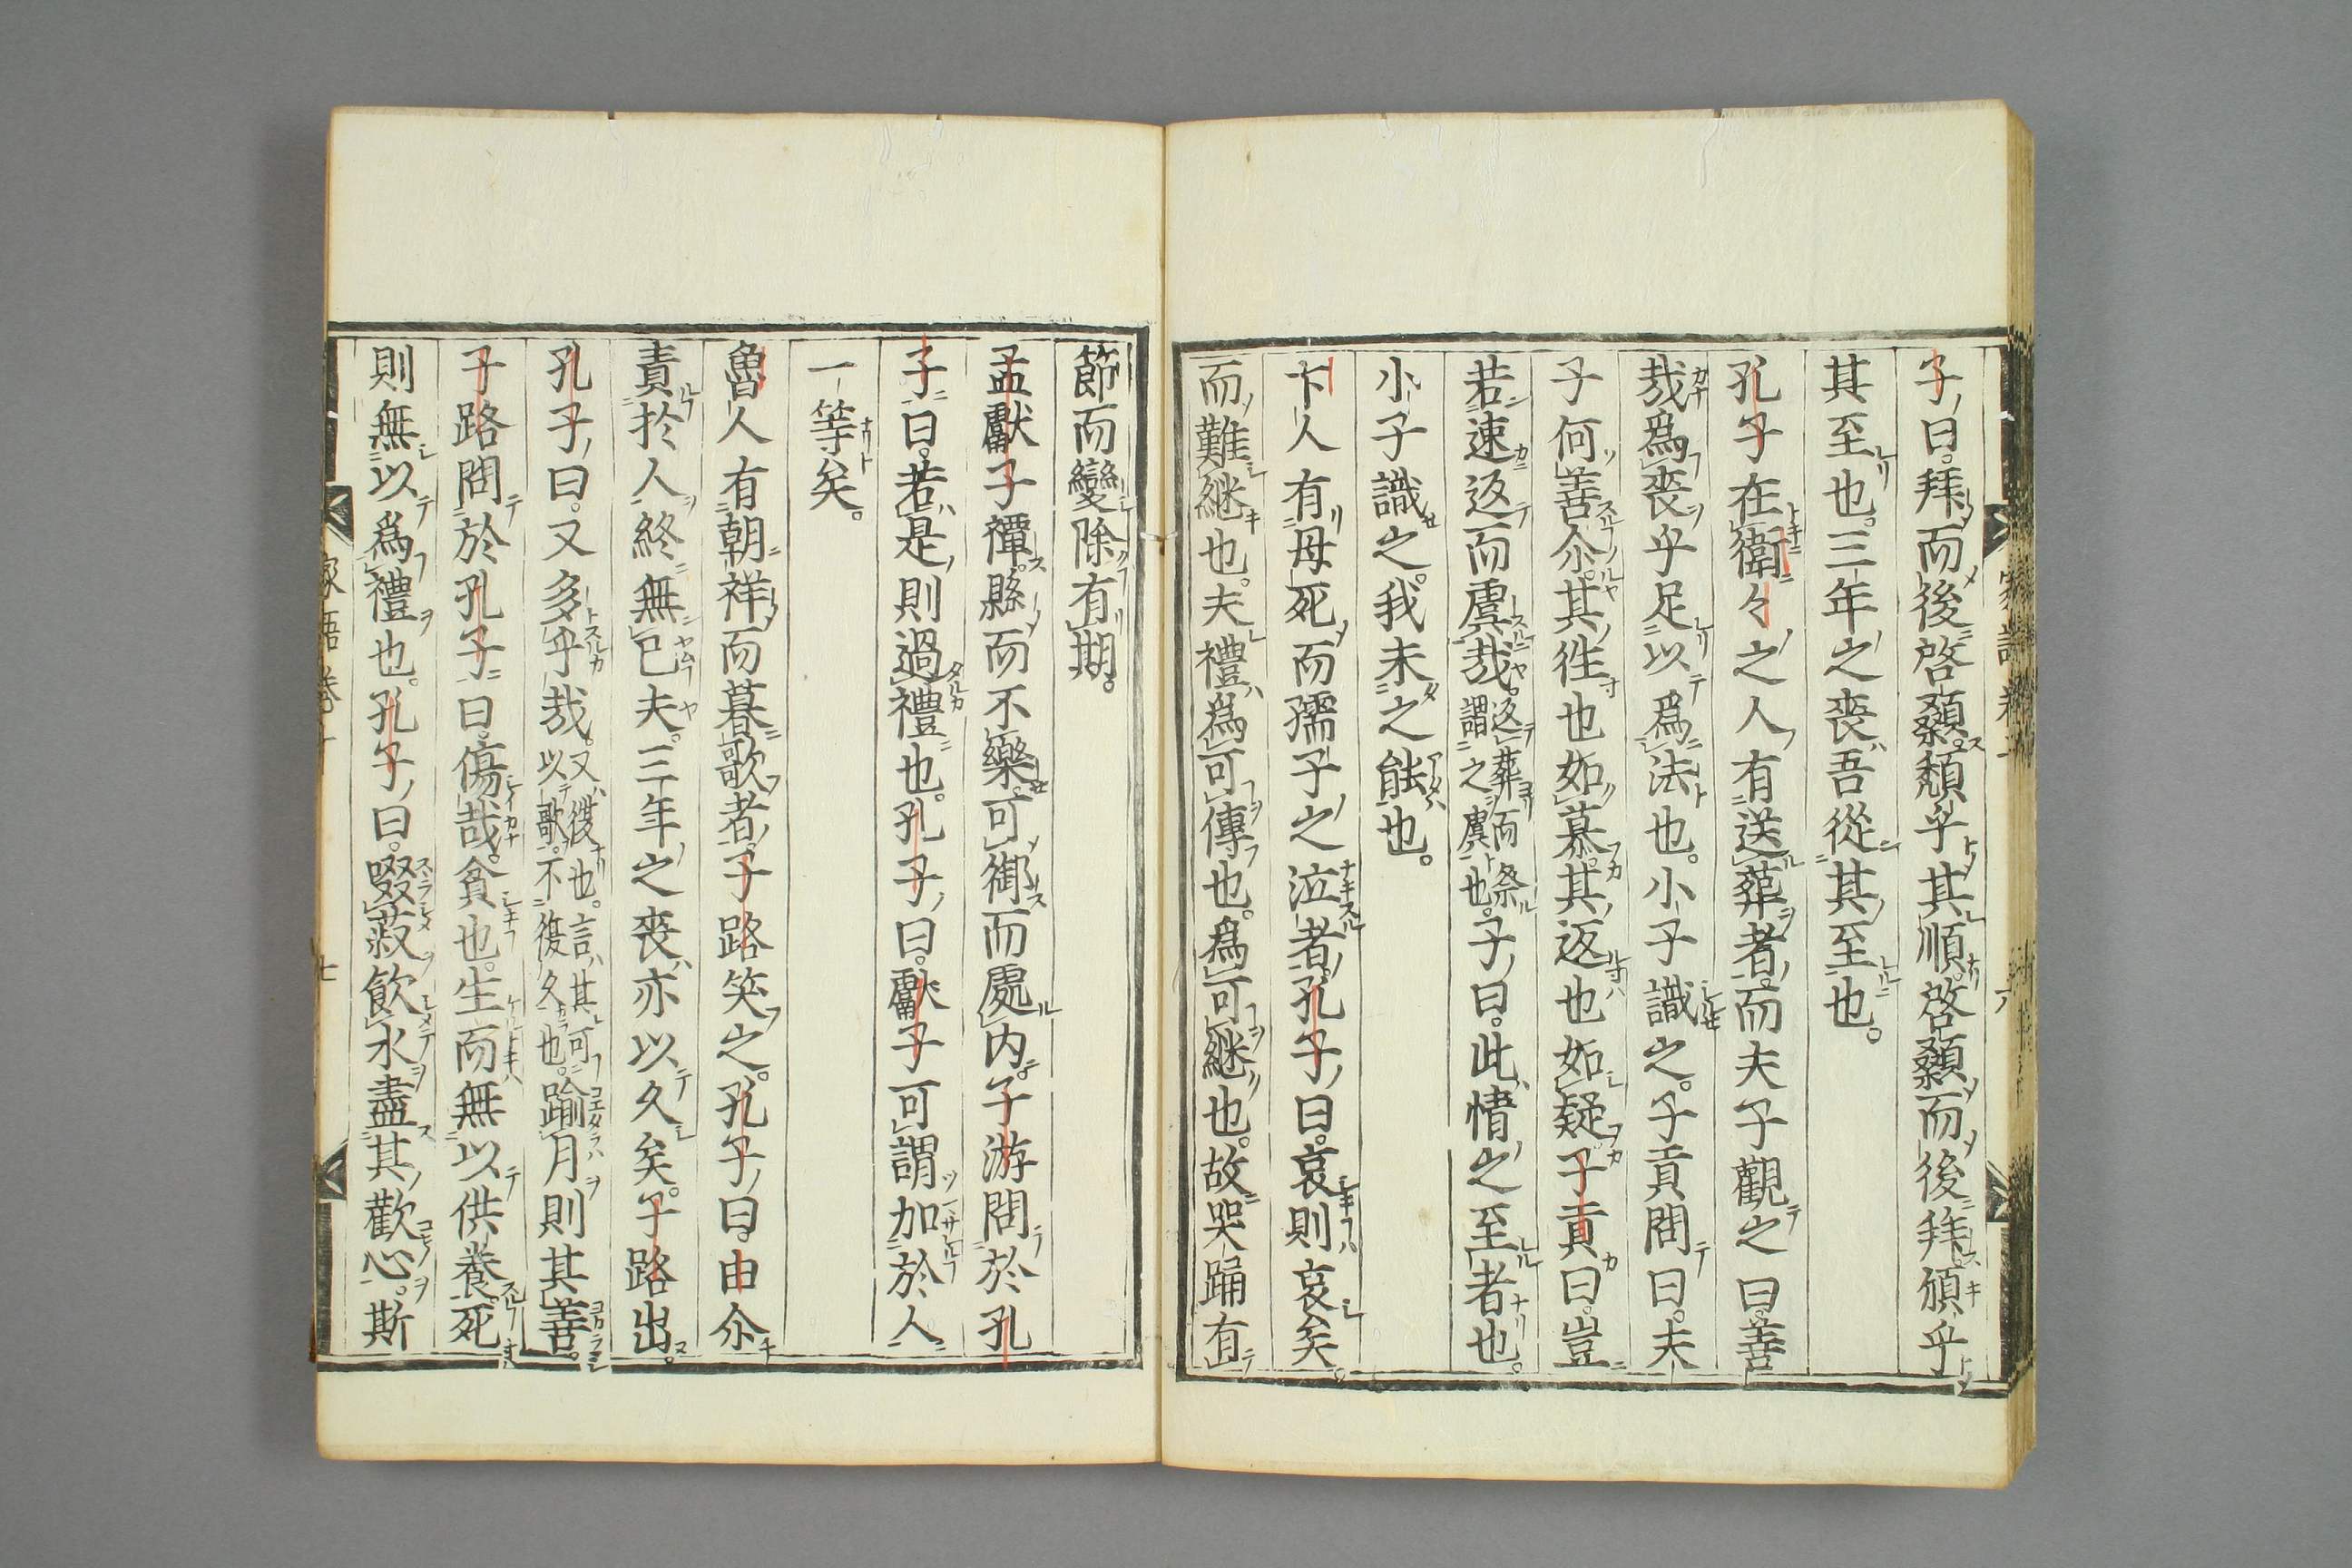 子曰。拜而後啓顙。頹乎其順。啓顙而後拜。頎乎
其至也。三年之喪吾從其至也。
孔子在衛々之人有送葬者。而夫子觀之曰。善
哉爲喪乎足以爲法也。小子識之。子貢問曰。夫
子何善尒。其徃也如慕。其返也如疑。子貢曰。豈
若速返而虞哉。返葬而祭謂之虞也。子曰。此情之至者也。
小子識之。我未之能也。
卞人有母死而孺子之泣者。孔子曰。哀則哀矣。
而難継也。夫禮爲可傳也。爲可継也。故哭踊有
節而變除有期。
孟獻子禫。縣而不樂。可御而處内。子游問於孔
子曰。若是則過禮也。孔子曰。獻子可謂加於人
一等矣。
魯人有朝祥而暮歌者。子路笑之。孔子曰。由尒
責於人終無已夫。三年之喪亦以久矣。子路出。
孔子曰。又多乎哉。又復也。言其可以歌。不復久也。踰月則其善。
子路問於孔子曰。傷哉。貧也。生而無以供養。死
則無以爲禮也。孔子曰。啜菽飲水盡其歡心。斯